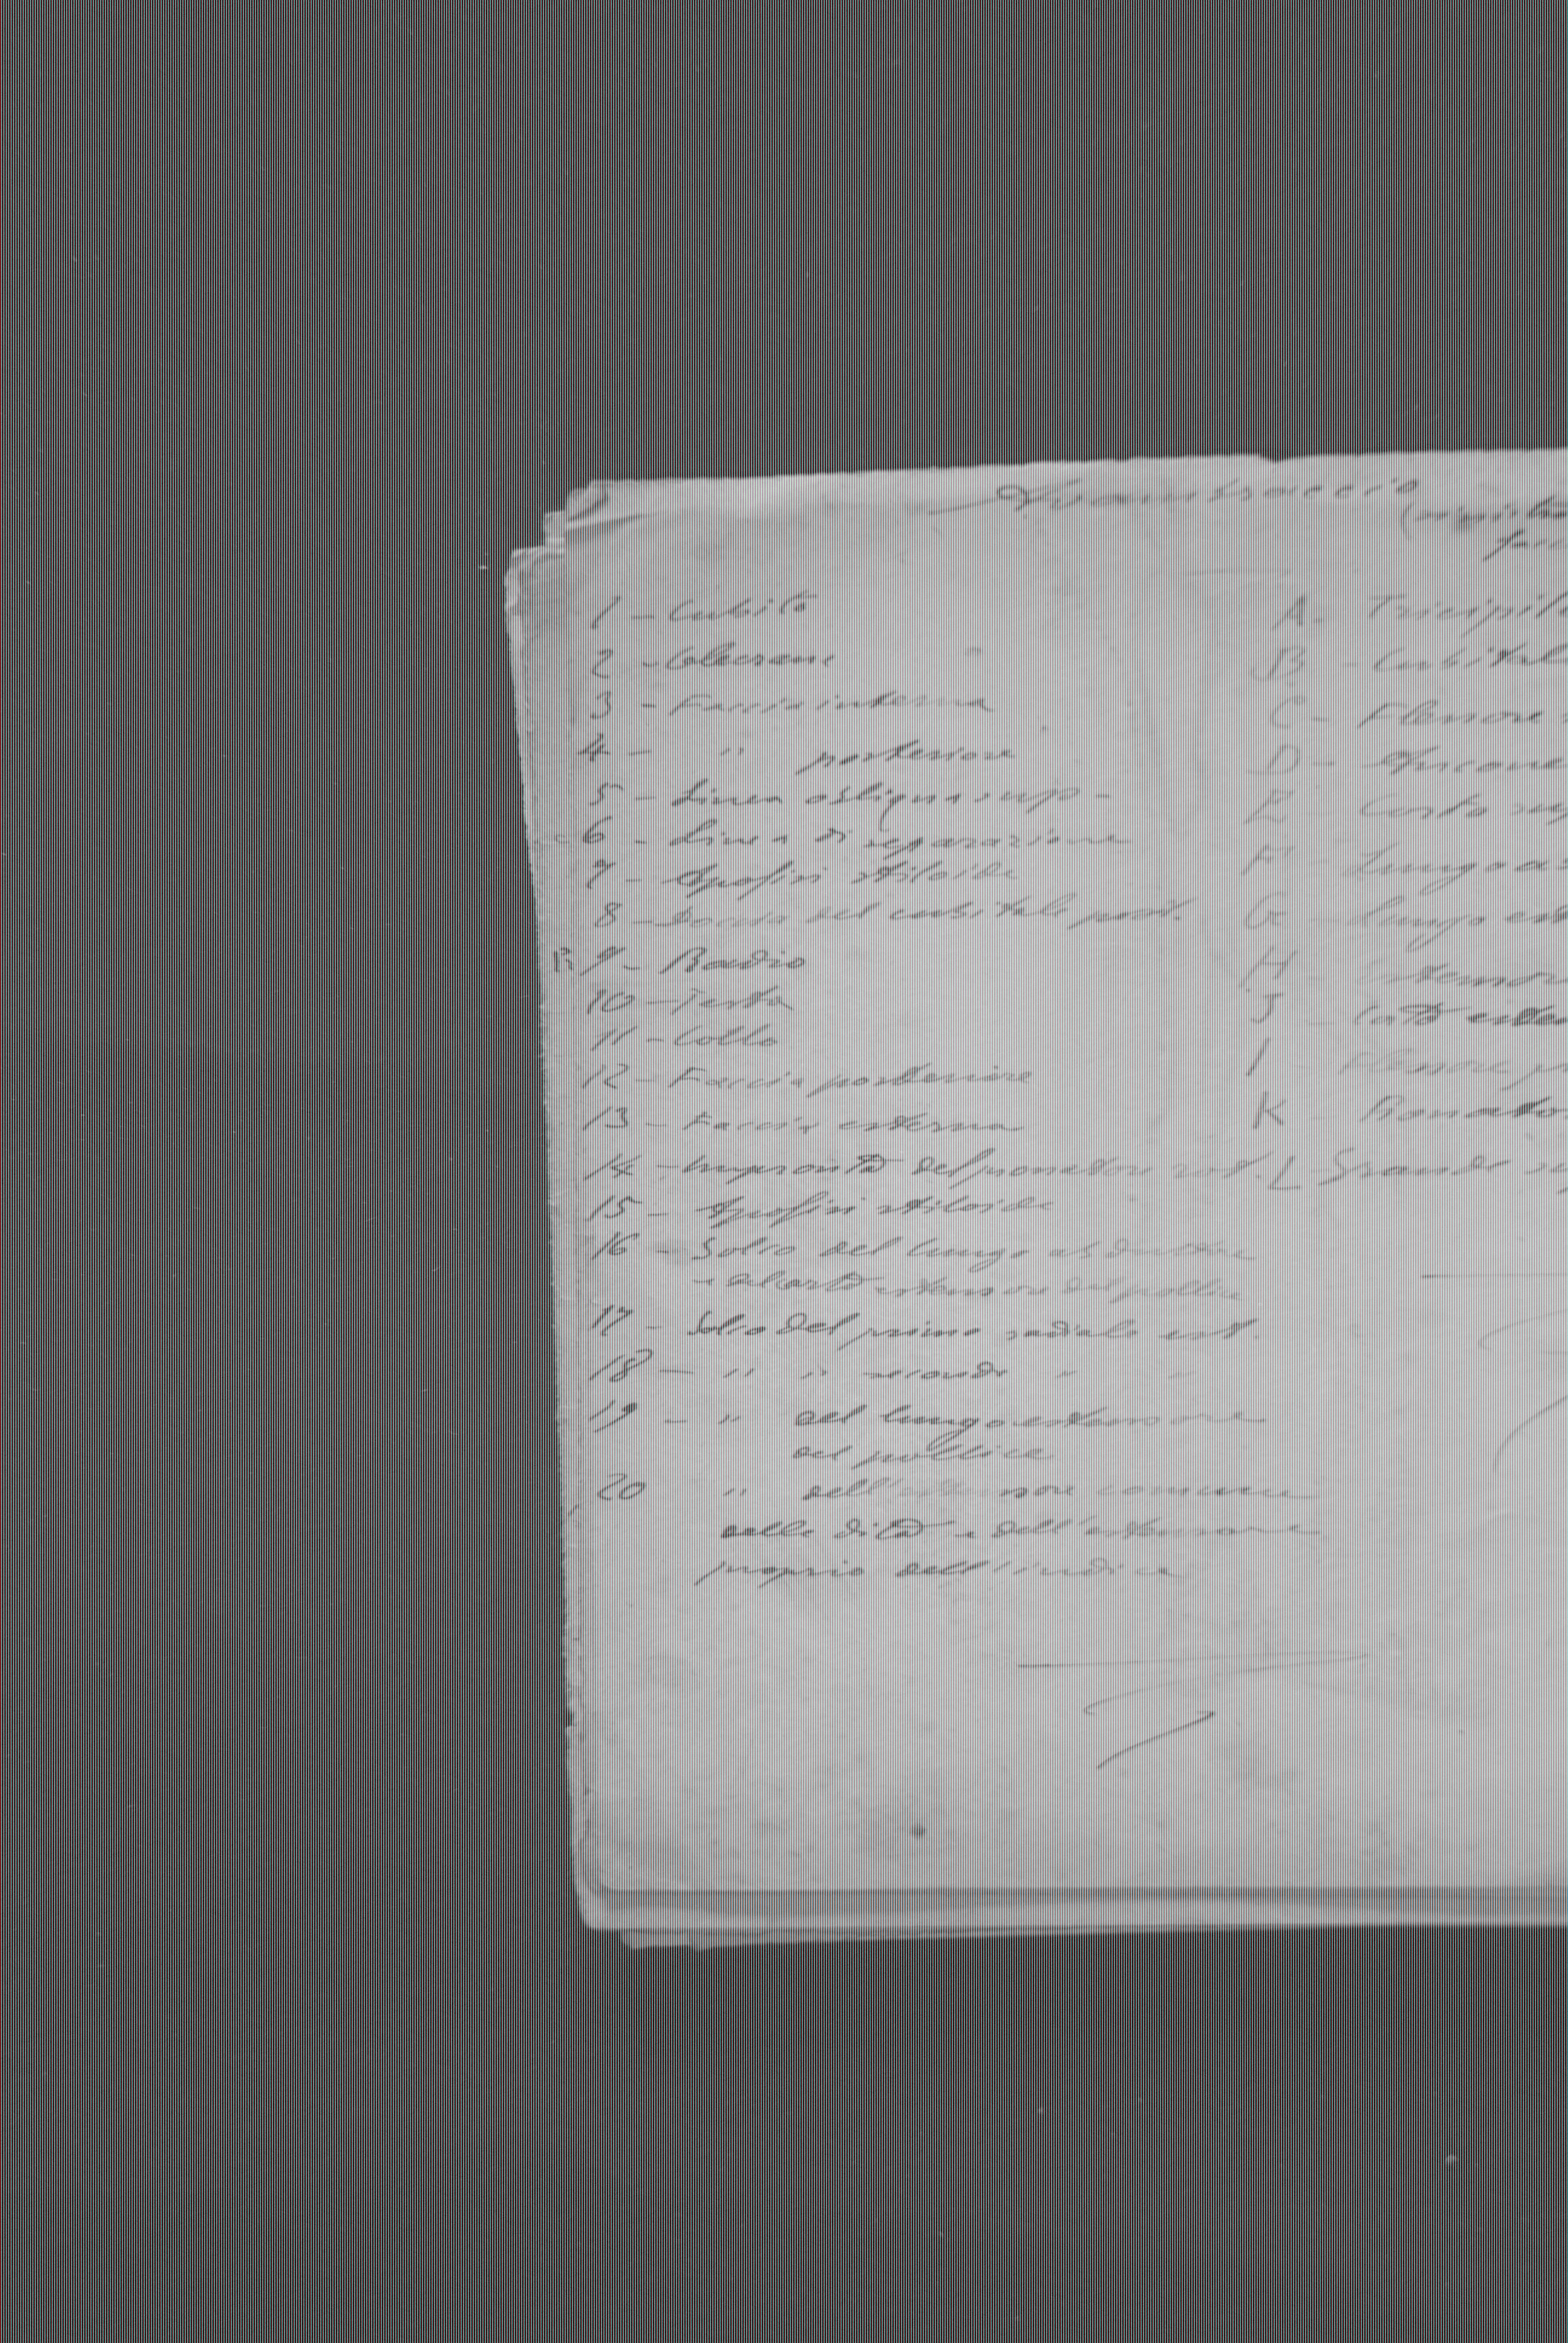 Avambraccio
1 - Cubito
2 - Olecrane
3 - Faccia interna
4 - " posteriore
5 - Linea obliqua sup -
6 - Linea di separazione
7 - Apofisi stiloide
8 - Doccia del cubitale post.
R 9 - Radio
10 - Testa
11 - Collo
12 - Faccia posteriore
13 - Faccia esterna
14 - Impronta del pronatore rot.
15 - Apofisi stiloide
16 - Solco del lungo abduttore
e al corto estensore del pollice
17 - Solco del primo radiale est.
18 - " " secondo "
19 - " del lungo estensore
del pollice
20 " dell'estensore comune
delle dita e dell'estensore
proprio dell'indice
A - Tricipit
B - Cubital
C - Flessore
D - Ancone
E Corto sup
F - Lungo a
G - Lungo est
H Estensor
J - Corto este
I Flessore pr
K Pronato
L Grande